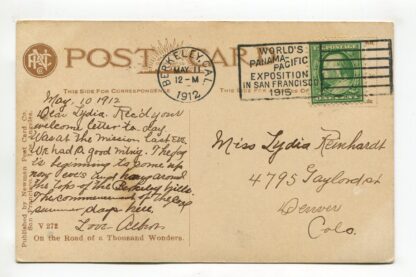 POST CARD
THIS SIDE FOR CORRESPONDENCE
THIS SIDE FOR
BERKELEY, CAL.
MAY 11
12-M
1912
WORLD'S
PANAMA-
PACIFIC
EXPOSITION
IN SAN FRANCISCO
1915
May, 10 1912
Dear Lydia. Rec'd your
welcome letter to day
Was at the Mission last eve.
We had a good mtng. The fog
is beginning to come up
now eve's and hang around
the tops of the Berkeley hills.
of the
summer days here.
Love
Miss Lydia Reinhardt
4795 Gaylord St
Denver
Colo.
Published by Newman Post Card Co.
San Francisco, Los Angeles.
V 272
On the Road of a Thousand Wonders.